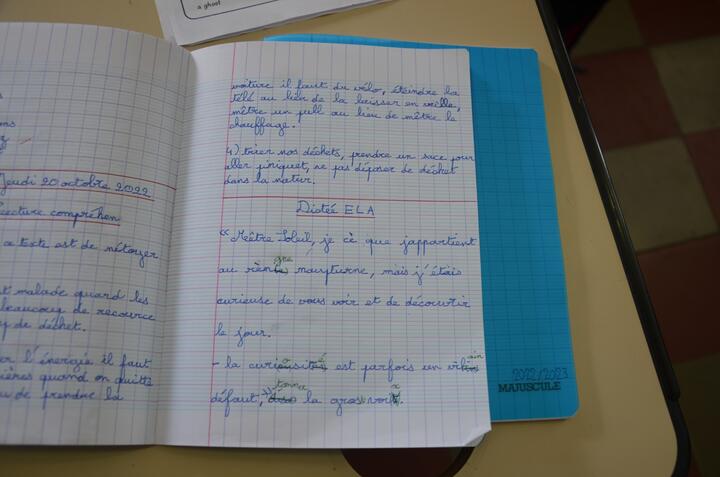 a ghost
ons
Jeudi 20 octobre 2022
Lecture compréhen
ce texte est de nétoyer
t malade quand les
beaucoup de recource
de déchet.
er l'énergie il faut
ières quand on quitte
u de prendre la
voiture il faut du vélo, éteindre la
télé au lieu de la laisser en veille,
mêtre un pull au lieu de mêtre le
chauffage.
4) trier nos déchets, prendre un sace pour
aller piniquet, ne pas déposer de déchet
dans la natur.
Dictée ELA
« Mêtre Soleil, je cè que j'appartient
au rène gne nauyturne, mais j'étais
curieuse de vous voir et de découvrir
le jour.
- la curiousité est parfois un vilain
défaut, tonna la gros voix.
2022/2023
MAJUSCULE